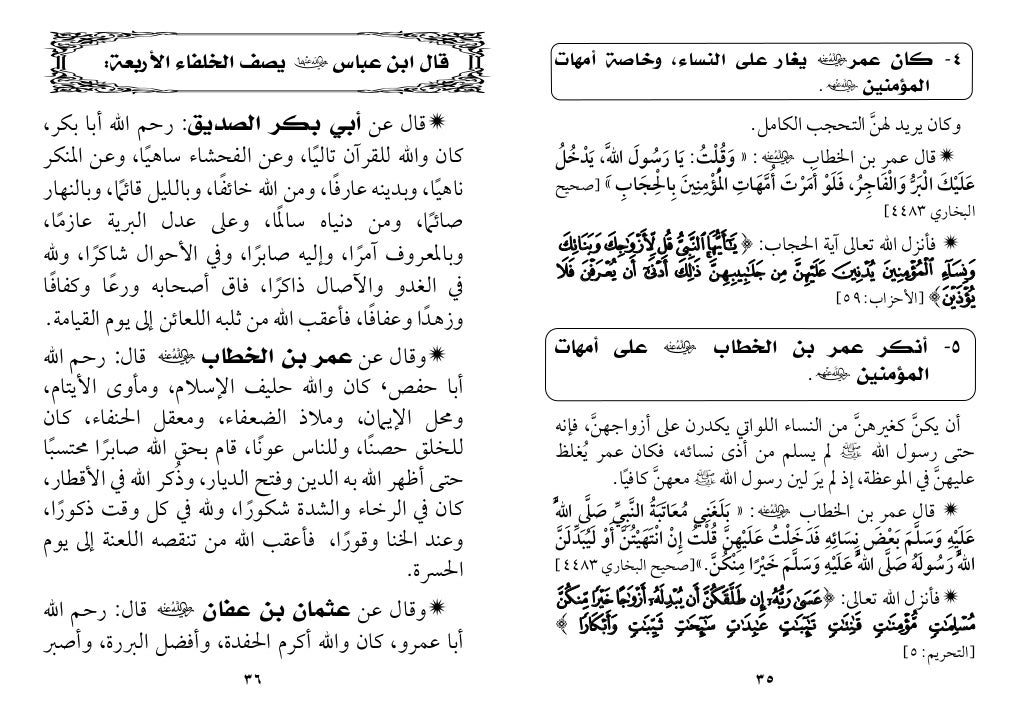 ٤- كان عمر رضي الله عنه يغار على النساء، وخاصة أمهات
المؤمنين رضي الله عنهن .
وكان يريد لهنَّ التحجب الكامل.
✷ قال عمر بن الخطاب رضي الله عنه: « وَقُلْتُ: يَا رَسُولَ اللهَّ، يَدْخُلُ
عَلَيْكَ الْبَرُّ وَالْفَاجِرُ، فَلَوْ أَمَرْتَ أُمَّهَاتِ المُؤْمِنِينَ بِالْحِجَابِ » [صحيح
البخاري ٤٤٨٣]
✷ فأنزل الله تعالى آية الحجاب: ﴿ يَٰٓأَيُّهَا ٱلنَّبِيُّ قُل لِّأَزْوَٰجِكَ وَبَنَاتِكَ
وَنِسَآءِ ٱلْمُؤْمِنِينَ يُدْنِينَ عَلَيْهِنَّ مِن جَلَٰبِيبِهِنَّ ذَٰلِكَ أَدْنَىٰٓ أَن يُعْرَفْنَ فَلَا
يُؤْذَيْنَ﴾ [الأحزاب: ٥٩]
٥- أنكر عمر بن الخطاب رضي الله عنه على أمهات
المؤمنين رضي الله عنهن .
أن يكنَّ كغيرهنَّ من النساء اللواتي يكدرن على أزواجهنَّ، فإنه
حتى رسول الله ﷺ لم يسلم من أذى نسائه، فكان عمر يُغلظ
عليهنَّ في الموعظة، إذ لم يرَ لين رسول الله ﷺ معهنَّ كافيًا.
✷ قال عمر بن الخطاب رضي الله عنه: « بَلَغَنِي مُعَاتَبَةُ النَّبِيِّ صَلَّى اللهَُّ
عَلَيْهِ وَسَلَّمَ بَعْضَ نِسَائِهِ فَدَخَلْتُ عَلَيْهِنَّ قُلْتُ إِنْ انْتَهَيْتُنَّ أَوْ لَيُبَدِّلَنَّ
اللهَُّ رَسُولَهُ صَلَّى اللهَُّ عَلَيْهِ وَسَلَّمَ خَيْرًا مِنْكُنَّ.»[صحيح البخاري ٤٤٨٣]
✷ فأنزل الله تعالى: ﴿عَسَىٰ رَبُّهُۥٓ إِن طَلَّقَكُنَّ أَن يُبْدِلَهُۥٓ أَزْوَٰجًا خَيْرًا مِّنكُنَّ
مُسْلِمَٰتٍ مُّؤْمِنَٰتٍ قَٰنِتَٰتٍ تَٰٓئِبَٰتٍ عَٰبِدَٰتٍ سَٰٓئِحَٰتٍ ثَيِّبَٰتٍ وَأَبْكَارًا ﴾
[التحريم: ٥]
٣٥
قال ابن عباس رضي الله عنهما يصف الخلفاء الأربعة:
✷قال عن أبي بكر الصديق: رحم الله أبا بكر،
كان والله للقرآن تاليًا، وعن الفحشاء ساهيًا، وعن المنكر
ناهيًا، وبدينه عارفًا، ومن الله خائفًا، وبالليل قائمًا، وبالنهار
صائمًا، ومن دنياه سالمًا، وعلى عدل البرية عازمًا،
وبالمعروف آمرًا، وإليه صابرًا، وفي الأحوال شاكرًا، ولله
في الغدو والآصال ذاكرًا، فاق أصحابه ورعًا وكفافًا
وزهدًا وعفافًا، فأعقب الله من ثلبه اللعائن إلى يوم القيامة.
✷وقال عن عمر بن الخطاب رضي الله عنه قال: رحم الله
أبا حفص، كان والله حليف الإسلام، ومأوى الأيتام،
ومحل الإيمان، وملاذ الضعفاء، ومعقل الحنفاء، كان
للخلق حصنًا، وللناس عونًا، قام بحق الله صابرًا محتسبًا
حتى أظهر الله به الدين وفتح الديار، وذُكر الله في الأقطار،
كان في الرخاء والشدة شكورًا، ولله في كل وقت ذكورًا،
وعند الخنا وقورًا، فأعقب الله من تنقصه اللعنة إلى يوم
الحسرة.
✷وقال عن عثمان بن عفان رضي الله عنه قال: رحم الله
أبا عمرو، كان والله أكرم الحفدة، وأفضل البررة، وأصبر
٣٦